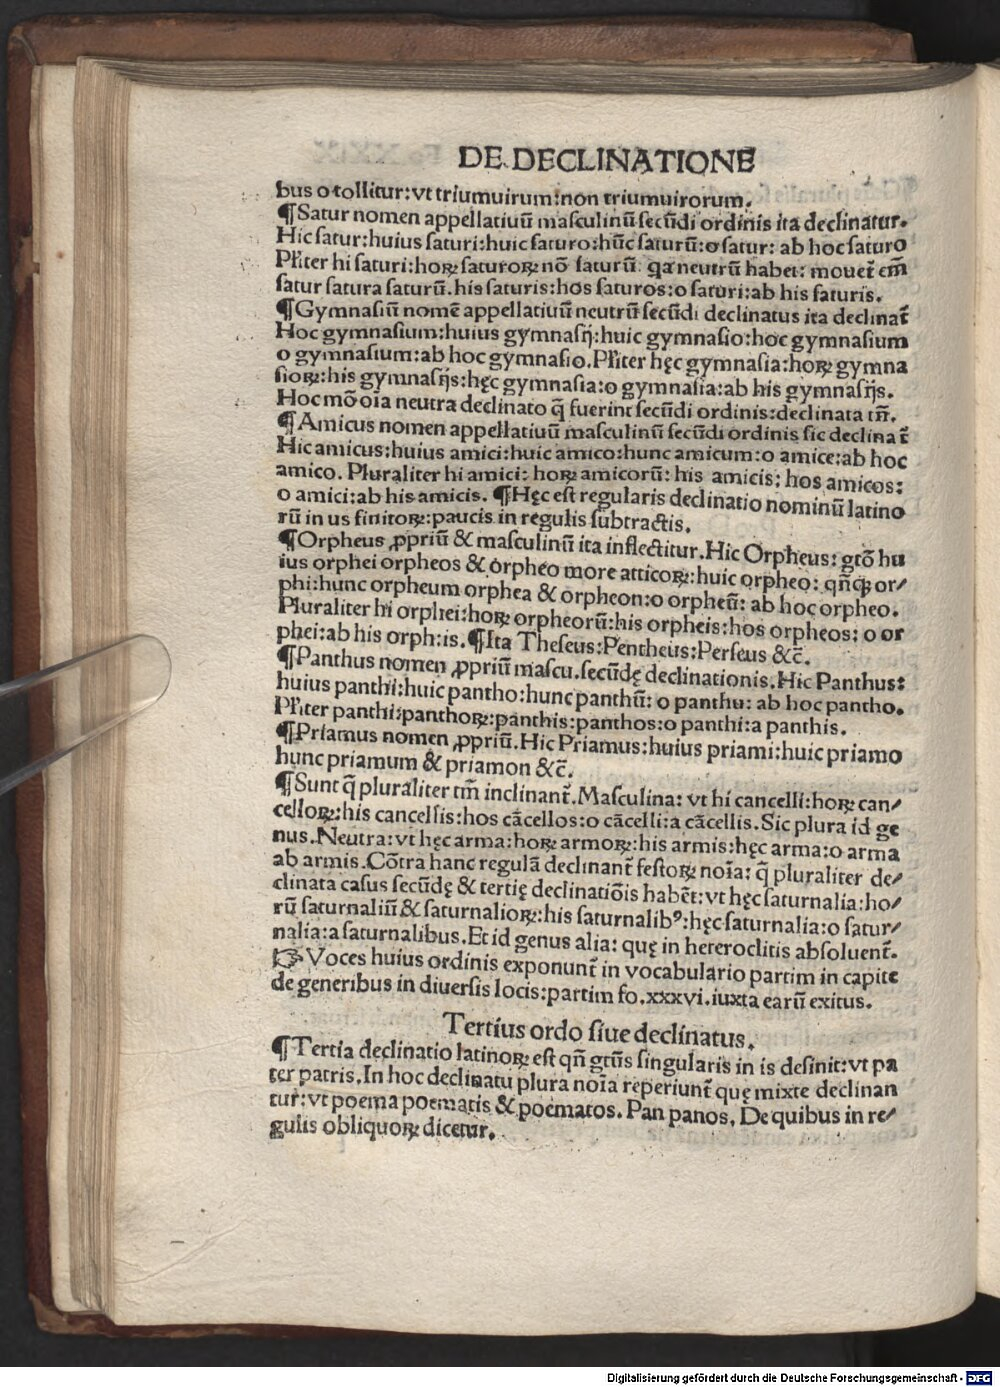 DE DECLINATIONE
bus o tollitur: vt triumuirum: non triumuirorum.
¶Satur nomen appellatiuũ masculinũ secũdi ordinis ita declinatur.
Hic satur: huius saturi: huic saturo: hũc saturũ: o satur: ab hoc saturo
Pl̃iter hi saturi: hoꝝ saturoꝝ nõ saturũ. qa neutrũ habet: mouet̃ em̃
satur satura saturũ. his saturis: hos saturos: o saturi: ab his saturis.
¶Gymnasiũ nomẽ appellatiuũ neutrũ secũdi declinatus ita declinat̃
Hoc gymnasium: huius gymnasij: huic gymnasio: hoc gymnasium
o gymnasium: ab hoc gymnasio. Pl̃iter hęc gymnasia: hoꝝ gymna
sioꝝ: his gymnasijs: hęc gymnasia: o gymnasia: ab his gymnasijs.
Hoc mõ oĩa neutra declinato q̃ fuerint secũdi ordinis: declinata tñ.
¶Amicus nomen appellatiuũ masculinũ secũdi ordinis sic declinat̃
Hic amicus: huius amici: huic amico: hunc amicum: o amice: ab hoc
amico. Pluraliter hi amici: hoꝝ amicorũ: his amicis: hos amicos:
o amici: ab his amicis. ¶Hęc est regularis declinatio nominũ latino
rũ in us finitoꝝ: paucis in regulis subtractis.
¶Orpheus ꝓpriũ & masculinũ ita inflectitur. Hic Orpheus: gtõ hu
ius orphei orpheos & orpheo more atticoꝝ: huic orpheo: qñqꝫ or⸗
phi: hunc orpheum orphea & orpheon: o orpheũ: ab hoc orpheo.
Pluraliter hi orphei: hoꝝ orpheorũ: his orpheis: hos orpheos: o or
phei: ab his orpheis. ¶Ita Theseus: Pentheus: Perseus &c̃.
¶Panthus nomen ꝓpriũ mascu. secũdę declinationis. Hic Panthus:
huius panthi: huic pantho: hunc panthũ: o panthu: ab hoc pantho.
Pl̃iter panthi: panthoꝝ: panthis: panthos: o panthi: a panthis.
¶Priamus nomen ꝓpriũ. Hic Priamus: huius priami: huic priamo
hunc priamum & priamon &c̃.
¶Sunt q̃ pluraliter tm̃ inclinant̃. Masculina: vt hi cancelli: hoꝝ can⸗
celloꝝ: his cancellis: hos cãcellos: o cãcelli: a cãcellis. Sic plura id ge
nus. Neutra: vt hęc arma: hoꝝ armoꝝ: his armis: hęc arma: o arma
ab armis. Cõtra hanc regulã declinant̃ festoꝝ noĩa: q̃ pluraliter de⸗
clinata casus secũdę & tertię declinatiõis habẽt: vt hęc saturnalia: ho⸗
rũ saturnaliũ & saturnalioꝝ: his saturnalibꝰ: hęc saturnalia: o satur⸗
nalia: a saturnalibus. Et id genus alia: quę in heteroclitis absoluent̃.
☞ Voces huius ordinis exponunt̃ in vocabulario partim in capite
de generibus in diuersis locis: partim fo. xxxvi. iuxta earũ exitus.
Tertius ordo siue declinatus.
¶Tertia declinatio latinoꝝ est qñ gtũs singularis in is desinit: vt pa
ter patris. In hoc declinatu plura noĩa reperiunt̃ quę mixte declinan
tur: vt poema poematis & poematos. Pan panos. De quibus in re⸗
gulis obliquoꝝ dicetur.
Digitalisierung gefördert durch die Deutsche Forschungsgemeinschaft - DFG